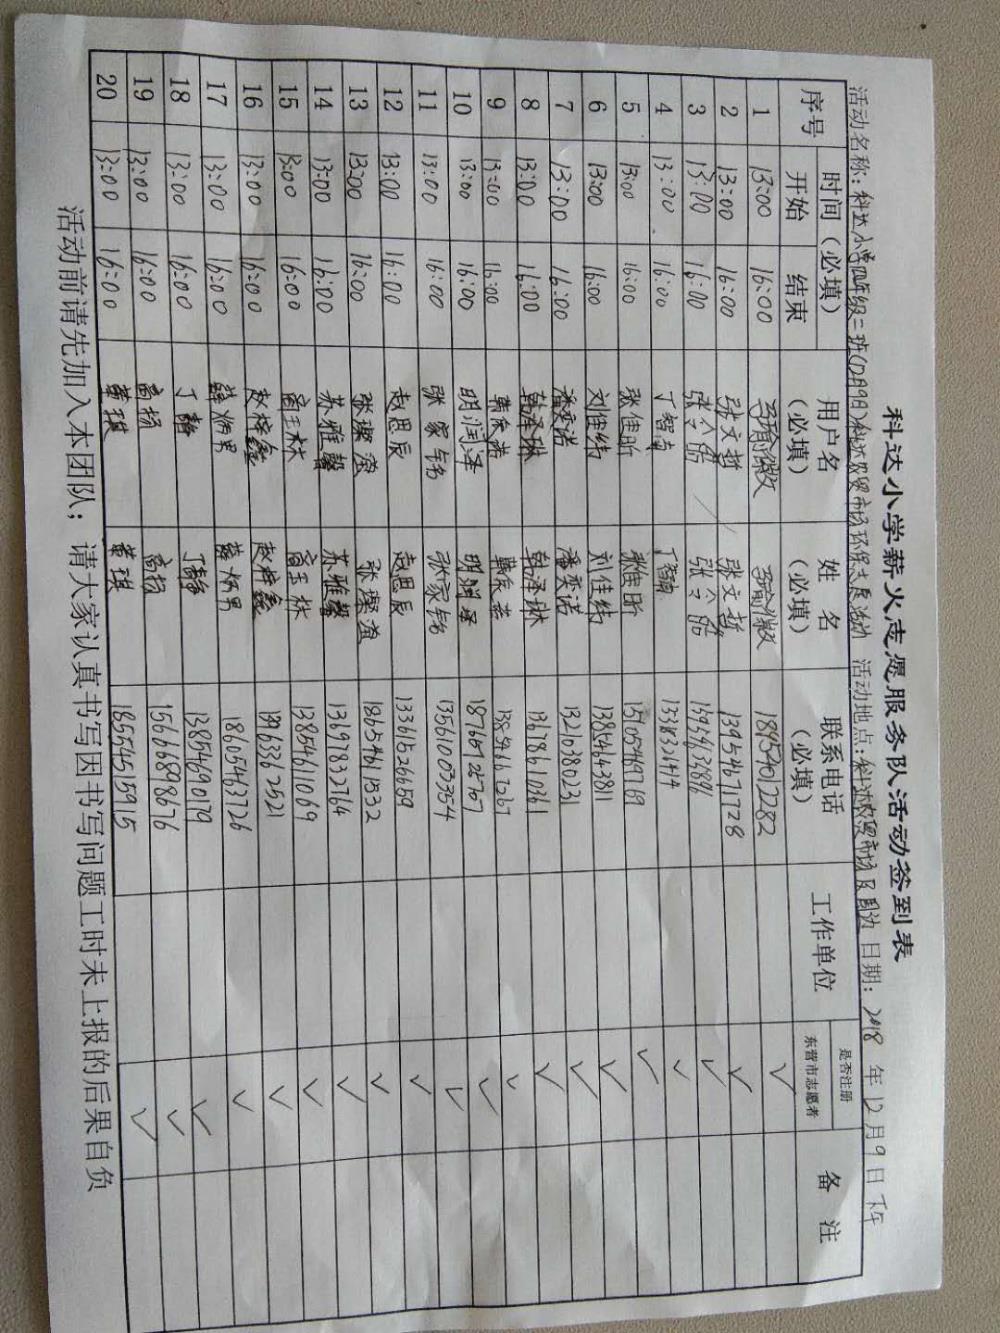 科达小学薪火志愿服务队活动签到表
活动名称：科达小学四年级二班12月9日科达农贸市场环保志愿活动 活动地点：科达农贸市场及周边 日期：2018年12月9日下午
序号 时间（必填） 用户名（必填） 姓名（必填） 联系电话（必填） 工作单位 是否注册东营市志愿者 备注
开始 结束
1 13:00 16:00 18954012282 ✓
2 13:00 16:00 张文哲 张文哲 13954671728 ✓
3 13:00 16:00 ✓
4 13:00 16:00 丁智楠 丁智楠 ✓
5 13:00 16:00 张佳昕 张佳昕 15105469769 ✓
6 13:00 16:00 刘佳绮 刘佳绮 13854643811 ✓
7 13:00 16:00 潘奕诺 潘奕诺 13210380231 ✓
8 13:00 16:00 韩泽琳 韩泽琳 13678610361 ✓
9 13:00 16:00 ✓
10 13:00 16:00 明润泽 明润泽 ✓
11 13:00 16:00 张家铭 张家铭 13561003354 ✓
12 13:00 16:00 赵思辰 赵思辰 13361526659 ✓
13 13:00 16:00 张璨滢 张璨滢 18654611532 ✓
14 13:00 16:00 苏雅馨 苏雅馨 13697833764 ✓
15 13:00 16:00 13854611069 ✓
16 13:00 16:00 赵梓鑫 赵梓鑫 13963362521 ✓
17 13:00 16:00 薛炳男 薛炳男 18605462726 ✓
18 13:00 16:00 丁静 丁静 13854690179 ✓
19 13:00 16:00 高扬 高扬 15666898676 ✓
20 13:00 16:00 董琪 董琪 18554515915 ✓
活动前请先加入本团队；请大家认真书写因书写问题工时未上报的后果自负